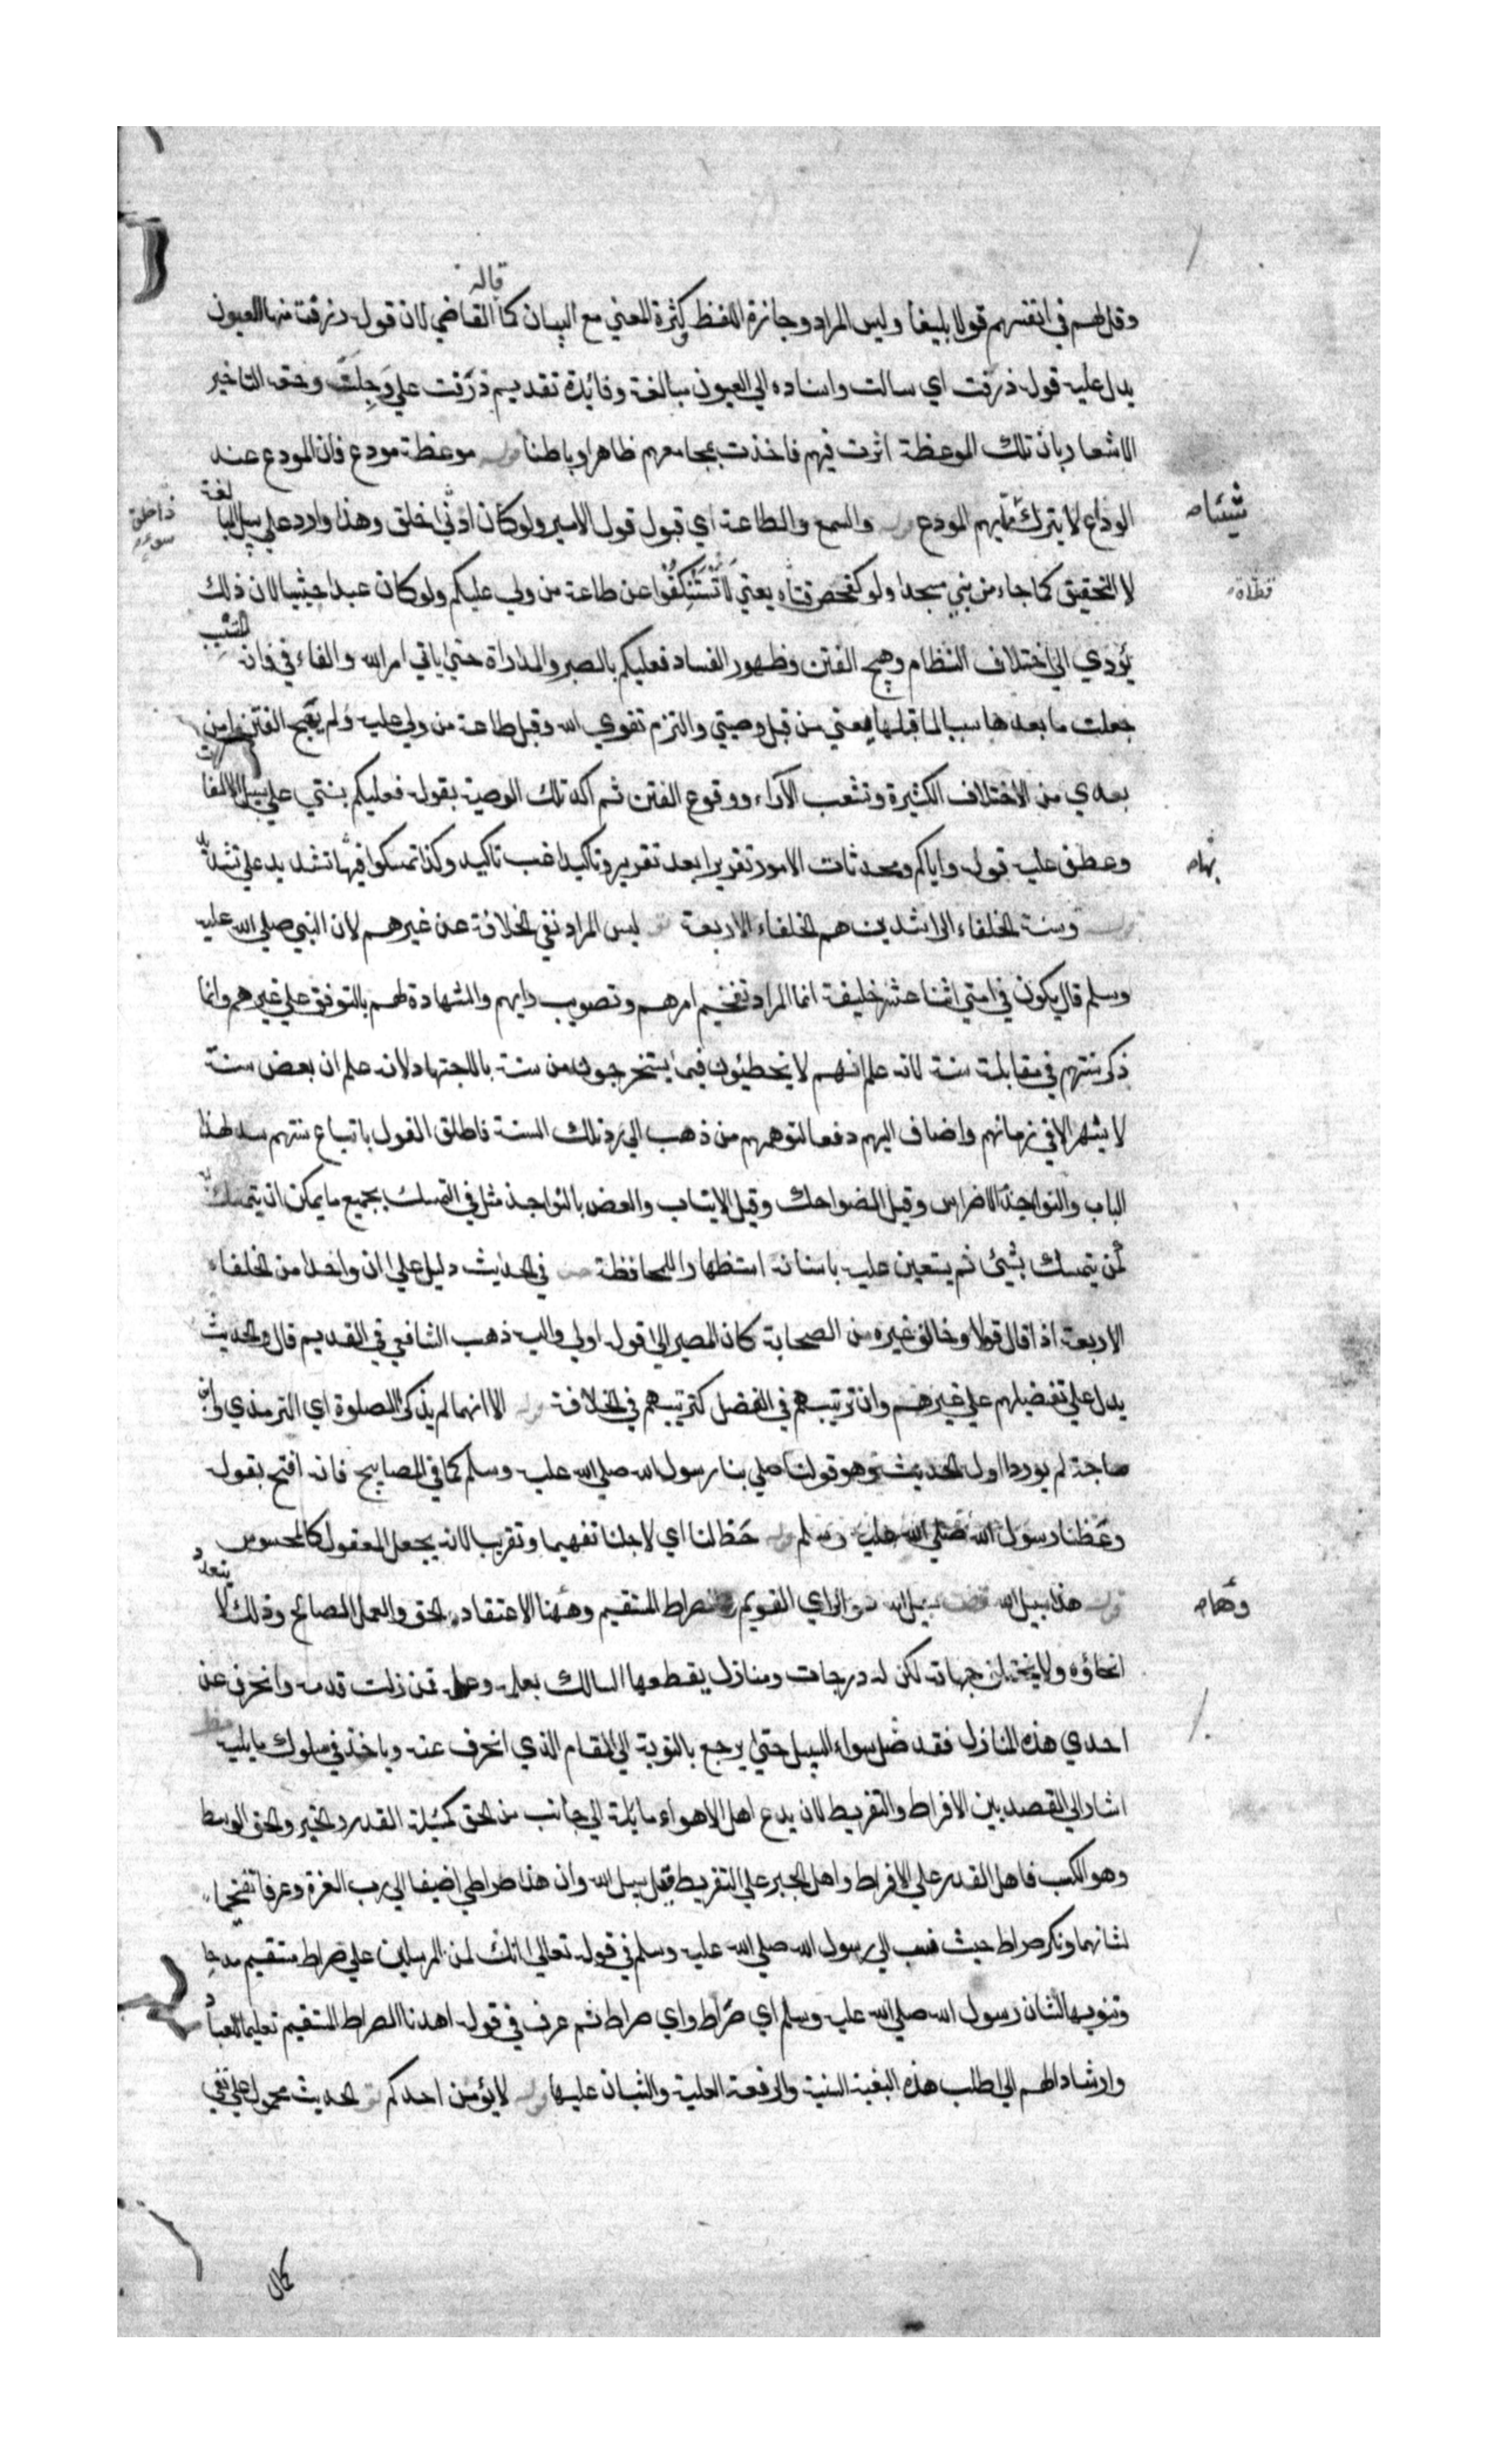 قاله
وقل لهم في انفسهم قولا بليغا وليس المراد وجازة اللفظ وكثرة المعني مع البيان كما القاضي لان قوله ذرفت منها العيون
يدل عليه قوله ذرفت اي سالت واسناده الي العيون مبالغة وفائدة تقديم ذرفت علي وجلت وحقه التاخير
الاشعار بان تلك الموعظة اثرت فيهم فاخذت بمجامعهم ظاهرا وباطنا قوله موعظة مودع فان المودع عند
الوداع لا يترك مما يهم المودع قوله والسمع والطاعة اي قبول قول الامير ولو كان ادني خلق وهذا وارد علي سبيل المبا
لغة
شيئا صح
لا التحقيق كما جاء من بني مسجدا ولو كمفحص قطاة يعني لا تستنكفوا عن طاعة من ولي عليكم ولو كان عبدا حبشيا لان ذلك
قطاة
يؤدي الي اختلاف النظام وهيج الفتن وظهور الفساد فعليكم بالصبر والمداراة حتي ياتي امر الله والفاء في فانه
للتسبب
جعلت ما بعدها سببا لما قبلها يعني من قبل وصيتي والتزم تقوي الله وقبل طاعة من ولي عليه ولم يهيج الفتن امن
بعدي من الاختلاف الكثيرة وتشعب الآراء ووقوع الفتن ثم اكد تلك الوصية بقوله فعليكم بسنتي علي سبيل الالتفا
ت
وعطف عليه قوله واياكم ومحدثات الامور تقريرا بعد تقرير وتاكيدا غب تاكيد وكذا تمسكوا فيها تشديد علي تشد
بها صح
قوله وسنة الخلفاء الراشدين هم الخلفاء الاربعة ليس المراد نفي الخلافة عن غيرهم لان النبي صلي الله عليه
وسلم قال يكون في امتي اثنا عشر خليفة انما المراد تفخيم امرهم وتصويب رايهم والشهادة لهم بالتوفق علي غيرهم وانما
ذكر سنتهم في مقابلة سنته لانه علم انهم لا يخطئون فيما يستخرجون من سنته بالاجتهاد لانه علم ان بعض سنته
لا يشهر الا في زمانهم واضاف اليهم دفعا لتوهم من ذهب الي رد تلك السنة فاطلق القول باتباع سنتهم سدا لهذا
الباب والنواجذ الاضراس وقيل الضواحك وقيل الانياب والعض بالنواجذ مثل في التمسك بجميع ما يمكن ان يتمسك
كمن يتمسك بشيئ ثم يستعين عليه باسنانه استظهارا للمحافظة في الحديث دليل علي ان واحدا من الخلفاء
الاربعة اذا قال قولا وخالف غيره من الصحابة كان المصير الي قوله اولي واليه ذهب الشافعي في القديم قال والحديث
يدل علي تفضيلهم علي غيرهم وان ترتيبهم في الفضل كترتيبهم في الخلافة قوله الا انهما لم يذكرا الصلوة اي الترمذي وابن
ماجة لم يوردا اول الحديث وهو قوله صلي بنا رسول الله صلي الله عليه وسلم كما في المصابيح فانه افتتح بقوله
وعظنا رسول الله صلي الله عليه وسلم قوله خط لنا اي لاجلنا تفهيما وتقريبا لانه يجعل المعقول كالمحسوس
قوله هذا سبيل الله سبيل الله هو الراي القويم والصراط المستقيم وهما الاعتقاد الحق والعمل الصالح وذلك لا يتعدد
وهما صح
انحاؤه ولا يختلف جهاته لكن له درجات ومنازل يقطعها السالك بعلمه وعمله فمن زلت قدمه وانحرف عن
احدي هذه المنازل فقد ضل سواء السبيل حتي يرجع بالتوبة الي المقام الذي انحرف عنه وياخذ في سلوك ما يليه
اشار الي القصد بين الافراط والتفريط لان بدع اهل الاهواء مائلة الي جانب من الحق كمسئلة القدر والجبر والحق الوسط
وهو الكسب فاهل القدر علي الافراط واهل الجبر علي التفريط قيل سبيل الله وان هذا صراطي اضيفا الي رب العزة وعرفا تفخيما
لشانهما ونكر صراط حيث نسب الي رسول الله صلي الله عليه وسلم في قوله تعالي انك لمن المرسلين علي صراط مستقيم مدحا
وتنويها لشان رسول الله صلي الله عليه وسلم اي صراط واي صراط ثم عرف في قوله اهدنا الصراط المستقيم تعليما للعباد
وارشادا لهم الي طلب هذه البغية السنية والرفعة العلية والثبات عليها قوله لا يؤمن احدكم الحديث محمول علي نفي
كمال